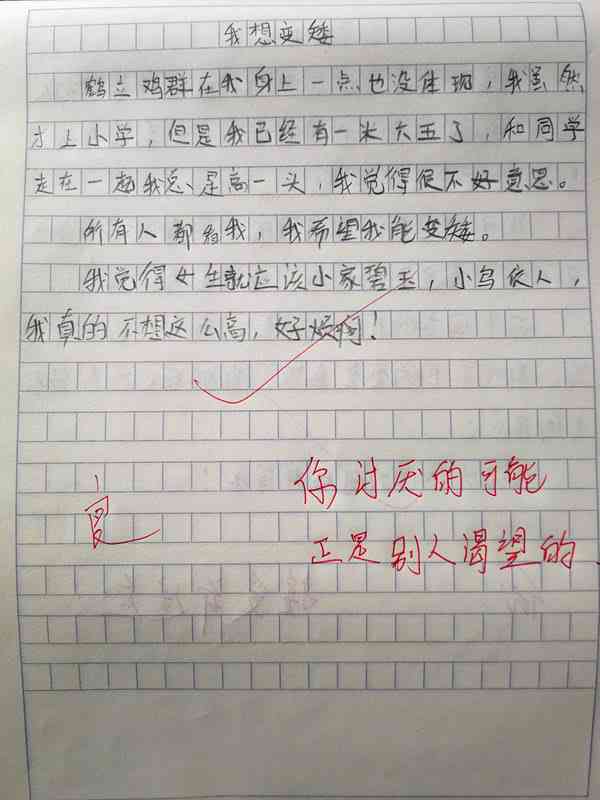 我想变矮
鹤立鸡群在我身上一点也没体现，我虽然
才上小学，但是我已经有一米六五了，和同学
走在一起我总是高一头，我觉得很不好意思。
所有人都看我，我希望我能变矮。
我觉得女生就应该小家碧玉，小鸟依人，
我真的不想这么高，好烦啊！
你讨厌的可能
正是别人渴望的.
良